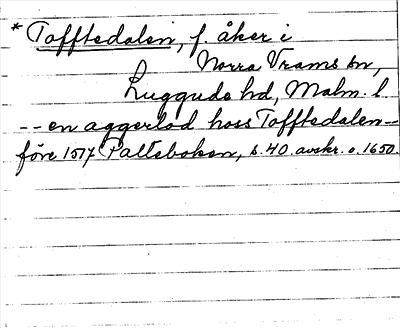 * Tofftedalen, f. åker i
Norra Vrams sn,
Luggude hd, Malm. l.
-- en aggerlod hoss Tofftedalen --
före 1517 (Palteboken, s. 40. avskr. o. 1650.